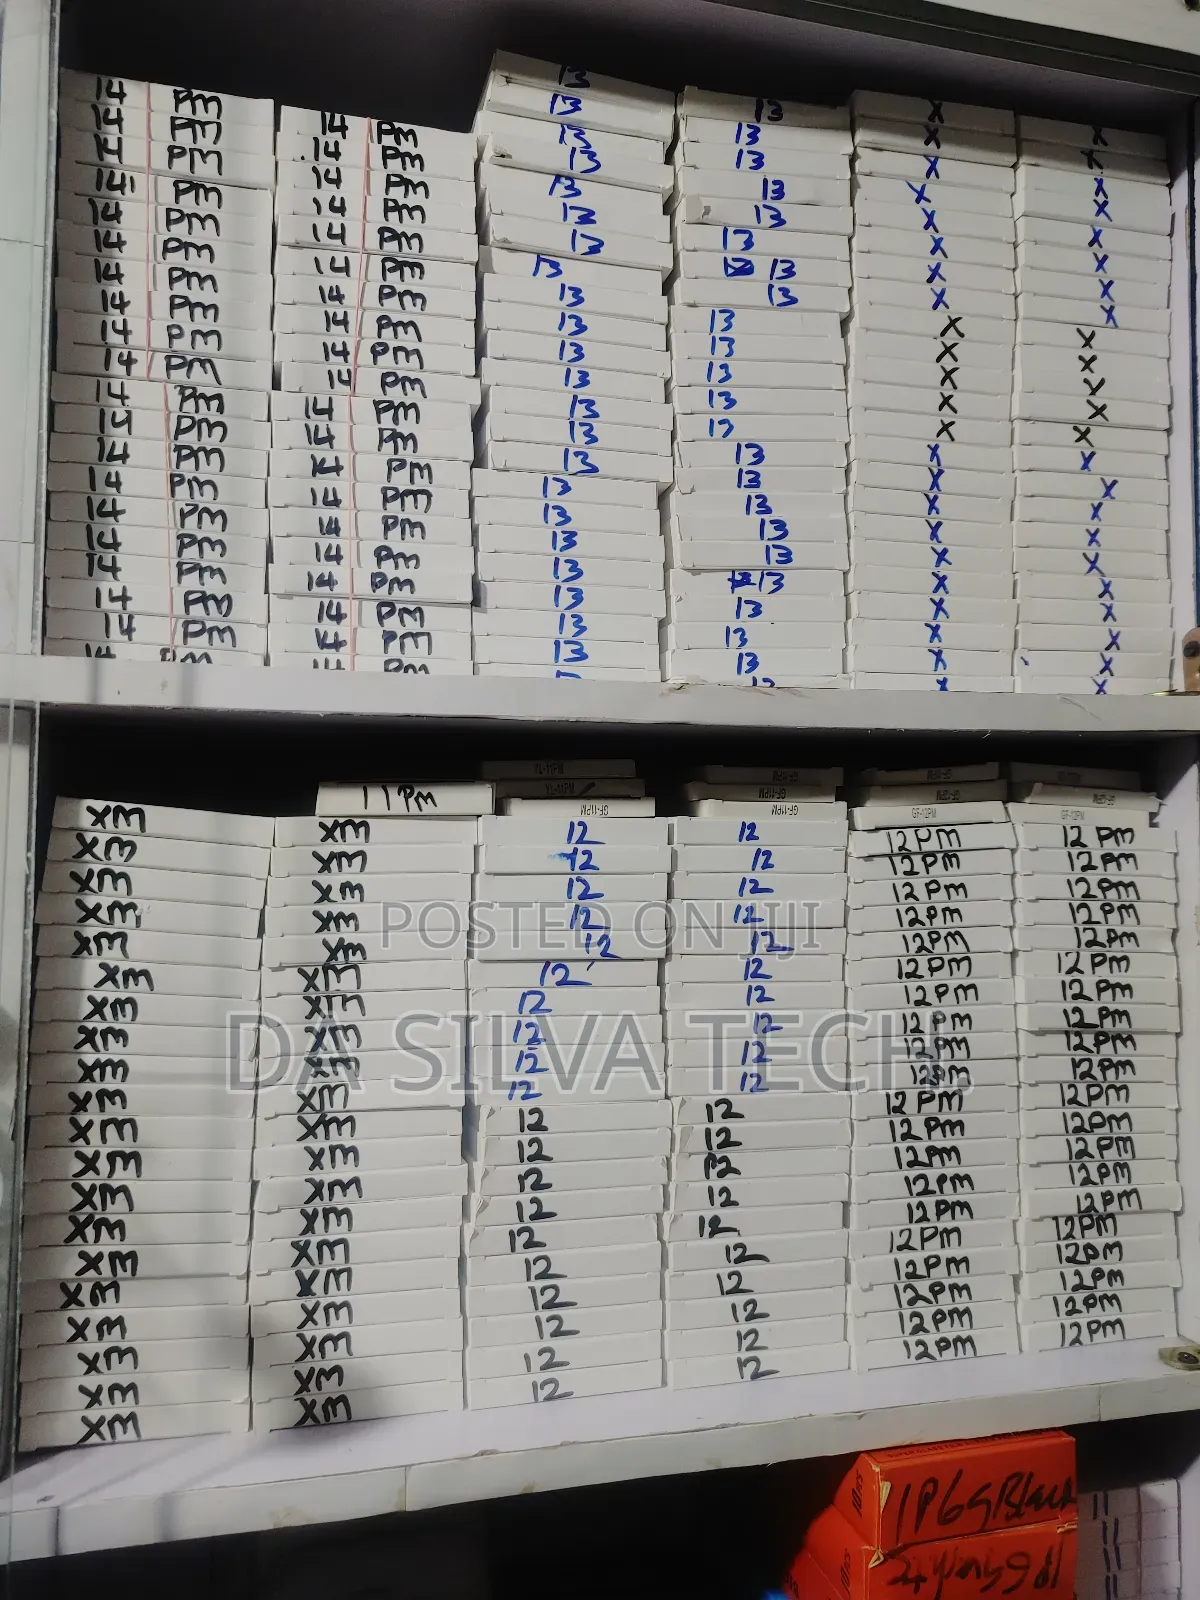 14 PM
14 PM
14 PM
14 PM
14 PM
14 PM
14 PM
14 PM
14 PM
14 PM
14 PM
14 PM
14 PM
14 PM
14 PM
14 PM
14 PM
14 PM
14 PM
14 PM
14 PM
14 PM
14 PM
14 PM
14 PM
14 PM
14 PM
14 PM
14 PM
14 PM
14 PM
14 PM
14 PM
14 PM
14 PM
14 PM
14 PM
14 PM
14 PM
14 PM
13
13
13
13
13
13
13
13
13
13
13
13
13
13
13
13
13
13
13
13
13
13
13
13
13
13
13
13
13
13
13
13
13
13
13
13
13
13
13
13
13
13
13
13
13
X
X
X
X
X
X
X
X
X
X
X
X
X
X
X
X
X
X
X
X
X
X
X
X
X
X
X
X
X
X
X
X
X
X
X
X
X
X
X
X
X
X
X
X
XM
XM
XM
XM
XM
XM
XM
XM
XM
XM
XM
XM
XM
XM
XM
XM
XM
XM
XM
XM
11PM
XM
XM
XM
XM
XM
XM
XM
XM
XM
XM
XM
XM
XM
XM
XM
XM
XM
XM
XM
XM
GF-11PM
12
12
12
12
12
12
12
12
12
12
12
12
12
12
12
12
12
12
12
12
GF-11PM
12
12
12
12
12
12
12
12
12
12
12
12
12
12
12
12
12
12
12
12
GF-12PM
12PM
12PM
12PM
12PM
12PM
12PM
12PM
12PM
12PM
12PM
12PM
12PM
12PM
12PM
12PM
12PM
12PM
12PM
12PM
12PM
GF-12PM
12PM
12PM
12PM
12PM
12PM
12PM
12PM
12PM
12PM
12PM
12PM
12PM
12PM
12PM
12PM
12PM
12PM
12PM
12PM
12PM
POSTED ON JIJI
DA SILVA TECH,
IP6G Black
11
11
11
11